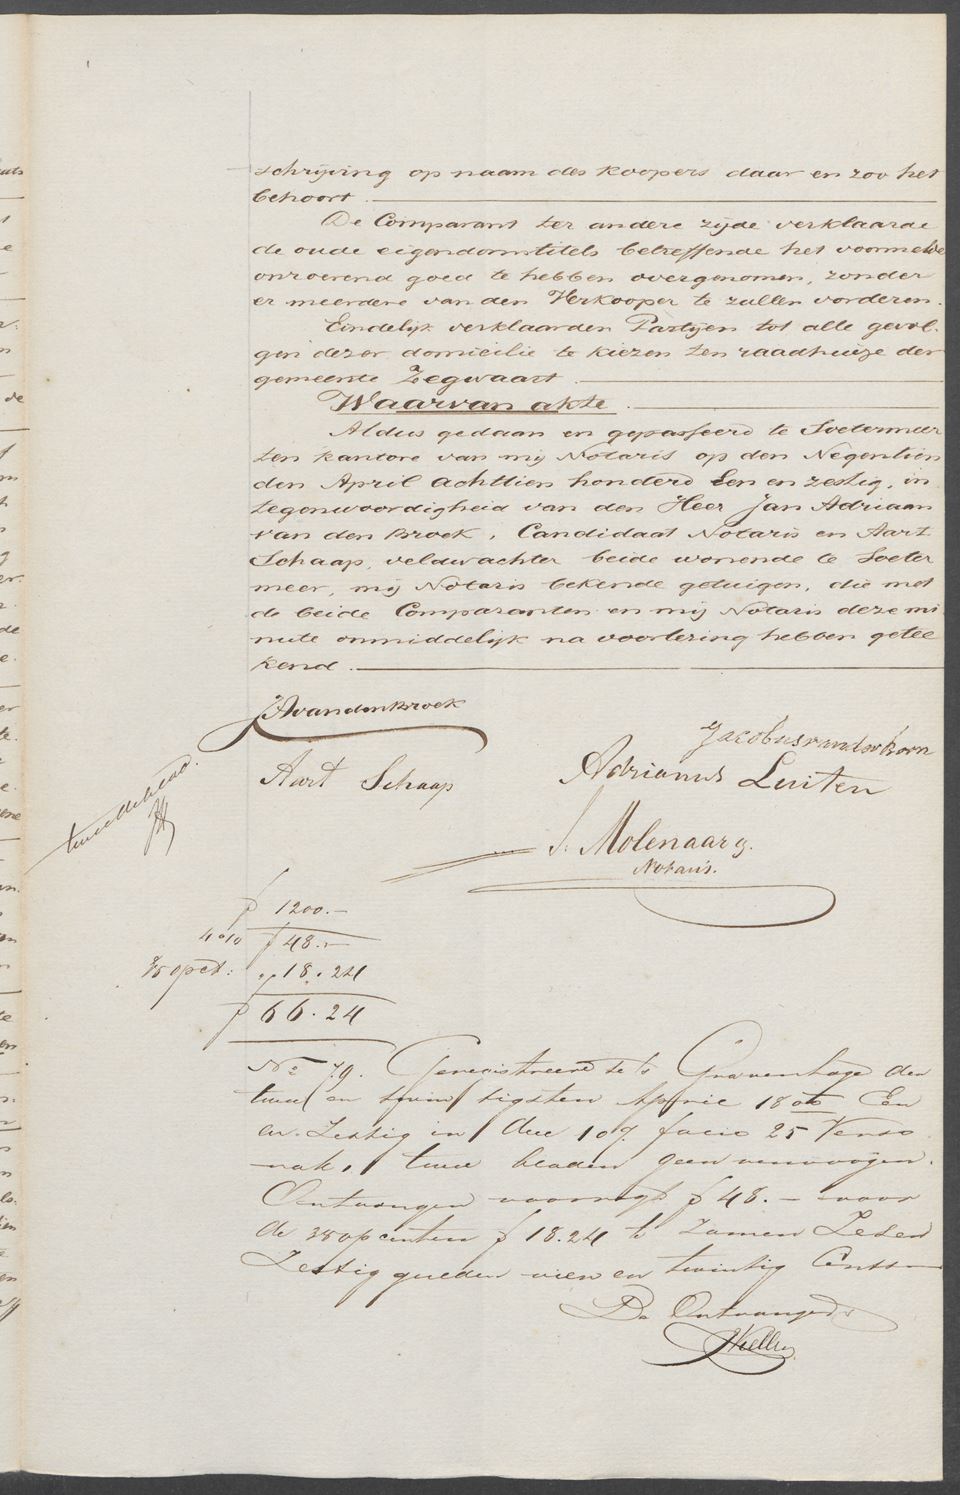 schrijving op naam des koopers daar en zoo het
behoort.
De Comparant ter andere zijde verklaarde
de oude eigendomstitels betreffende het voormelde
onroerend goed te hebben overgenomen, zonder
er meerdere van den Verkooper te zullen vorderen.
Eindelijk verklaarden Partijen tot alle gevol-
gen dezer domicilie te kiezen ten raadhuize der
gemeente Zegwaart.
Waarvan akte.
Aldus gedaan en gepasseerd te Soetermeer
ten kantore van mij Notaris op den Negentien
den April achttien honderd Een en zestig, in
tegenwoordigheid van den Heer Jan Adriaan
van den Broek, Candidaat Notaris en Aart
Schaap, veldwachter beide wonende te Soeter
meer, mij Notaris bekende getuigen, die met
de beide Comparanten en mij Notaris deze mi
nute onmiddelijk na voorlezing hebben getee
kend.
JAvandenBroek
Jacobus van der Born
Aart Schaap
Adrianus Luiten
tweede blad.
J. Molenaar
Notaris.
f 1200.-
4 0/0 f 48.-
38 opct: " 18.24
f 66.24
No 79. Geregistreerd te 's Gravenhage den
twee en twintigsten April 1800 Een
en Zestig in deel 107 folio 25 Verso
vak 1 twee bladen geen renvooijen.
Ontvangen voor regt f 48.- voor
de 38 opcenten f 18.24 te zamen Zes en
Zestig gulden vier en twintig Cents
De Ontvanger